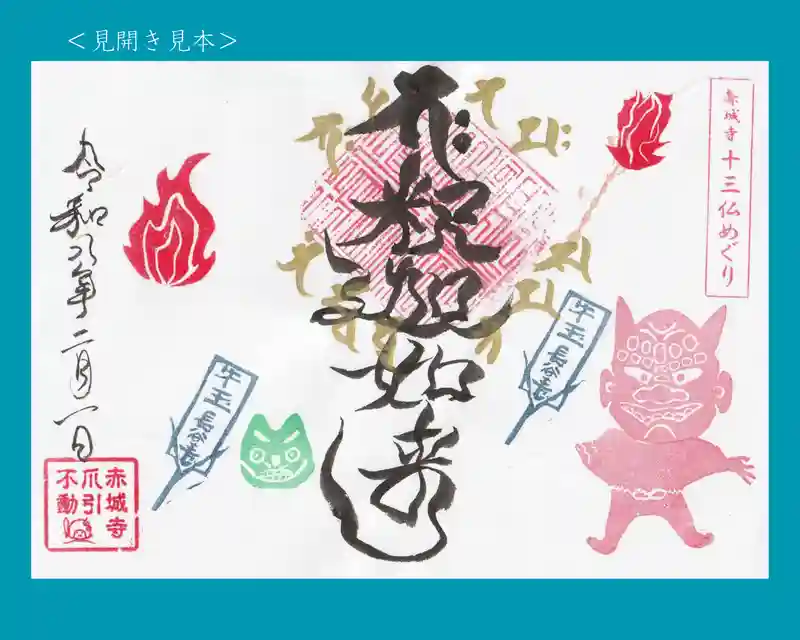 ＜見開き見本＞
赤城寺 十三仏めぐり
釈迦如来
牛玉 長谷寺
牛玉 長谷寺
令和六年二月一日
赤城寺
爪引
不動